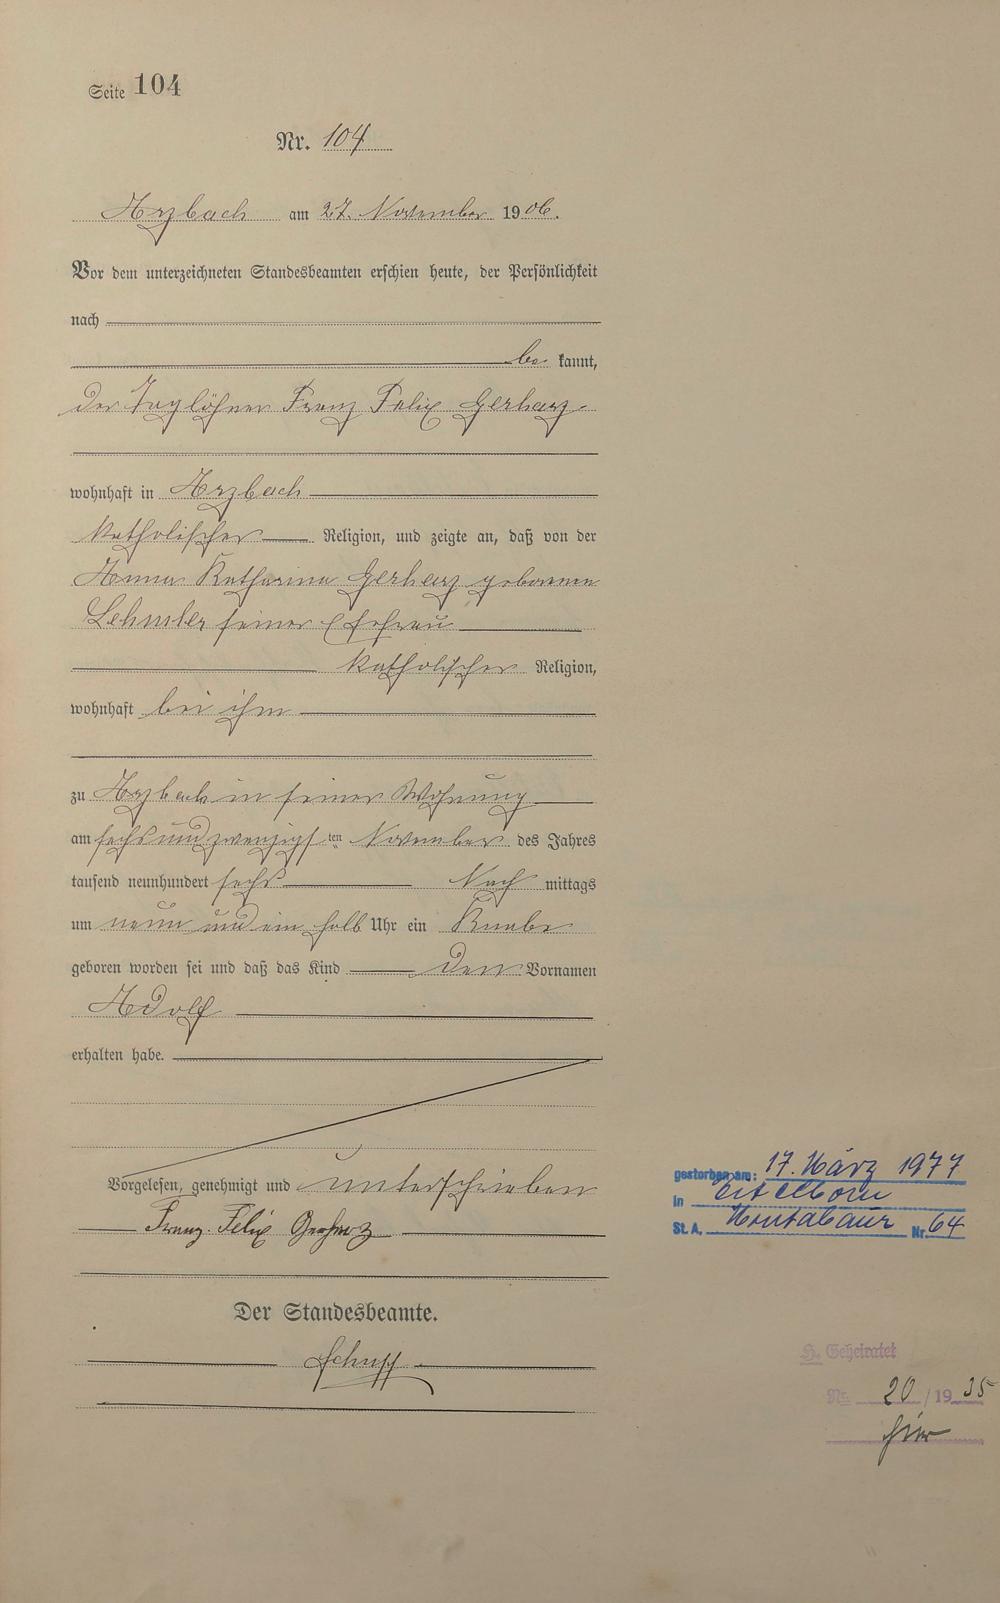 Seite 104
Nr. 104
Arzbach am 27. November 1906.
Vor dem unterzeichneten Standesbeamten erschien heute, der Persönlichkeit
nach
be kannt,
der Taglöhner Franz Felix Gerharz
wohnhaft in Arzbach
katholischer Religion, und zeigte an, daß von der
Anna Katharina Gerharz geborenen
Lehmler seiner Ehefrau
katholischer Religion,
wohnhaft bei ihm
zu Arzbach in seiner Wohnung
am sechs und zwanzigsten November des Jahres
tausend neunhundert sechs Nach mittags
um neun und ein halb Uhr ein Knabe
geboren worden sei und daß das Kind den Vornamen
Adolf
erhalten habe.
Vorgelesen, genehmigt und unterschrieben
Franz Felix Gerharz
Der Standesbeamte.
gestorben am: 17. März 1977
in Eitelborn
St. A. Montabaur Nr. 64
H. Geheiratet
Nr. 20/1935
hier